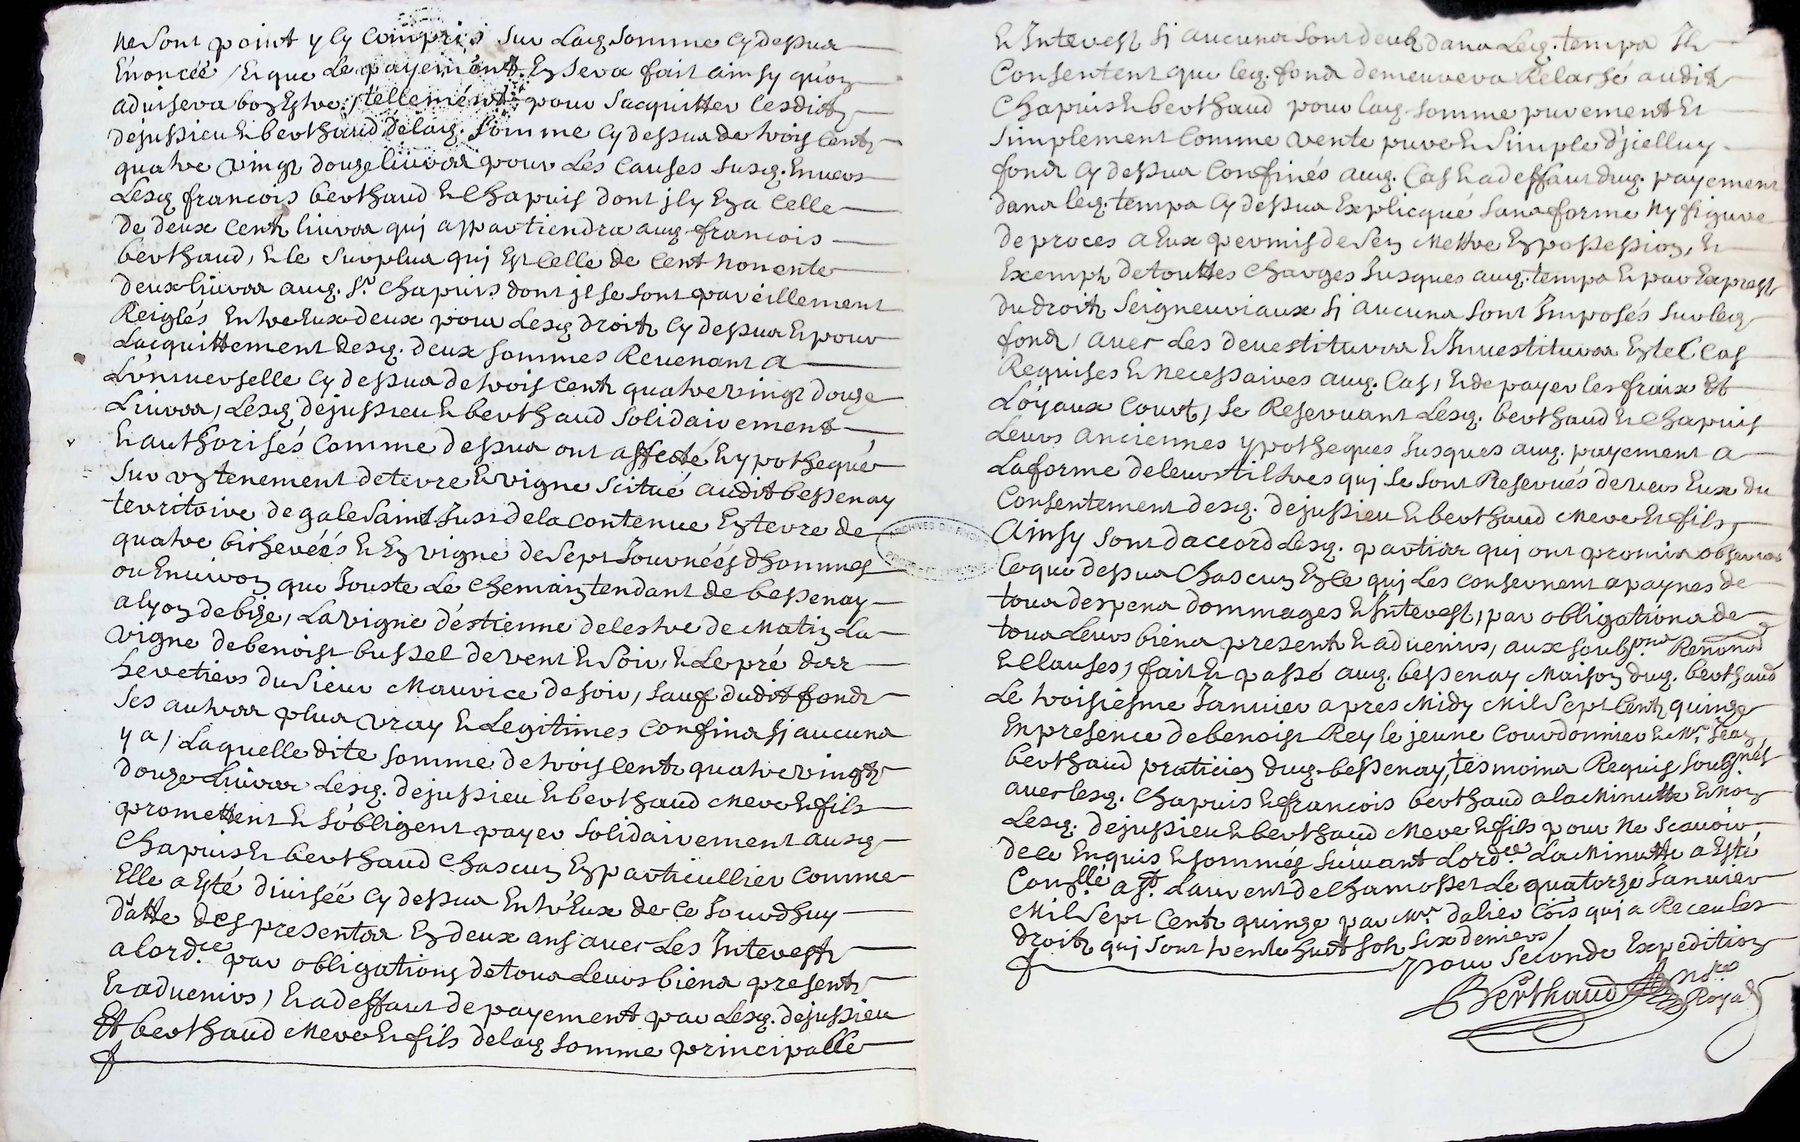 ne sont point y cy compris sur lad. somme cy dessus
Enoncée, Et que Le payement En sera fait ainsy qu'on
advisera bon Estre, tellement pour s'acquitter lesdits
dejussieu et berthaud delad. somme cy dessus de trois Cents
quatre vingt douze livres pour Les Causes susd. Envers
Lesd. francois berthaud et Chapuis dont jl y En a Celle
de deux Cents livres quj appartiendra aud. francois
berthaud, et le surplus quj Est Celle de Cent nonente
deux livres aud. Sr. Chapuis dont jl se sont pareillement
Reiglés Entre Eux deux pour Lesd. droits cy dessus et pour
Lacquittement desd. deux sommes Revenant a
L'universelle cy dessus de trois Cents quatre vingt douze
Livres, Lesd. dejussieu et berthaud solidairement
et authorisés Comme dessus ont affecté et ypothequé
sur un tenement de terre et vigne scitué audit bessenay
territoire de gale saint Just de la contenue En terre de
quatre bicherées et En vigne de sept Journées d'hommes
ou Environ que Jouste Le Chemain tendant de bessenay
a lyon de bize, La vigne d'éstienne delestre de Matin La
vigne de benoist bussel de vent et soir, et Le pré des
heretiers du sieur Maurice de soir, sauf dudit fonds
ses autres plus vray et Legitimes Confins sj aucuns
y a, Laquelle dite somme de trois Cents quatre vingts
douze Livres Lesd. dejussieu et berthaud Mere et fils
promettent et s'obligent payer solidairement ausd.
Chapuis et berthaud Chascun En particullier Comme
Elle a Esté divisée cy dessus Entre Eux de Ce Jourdhuy
datte des presentes En deux ans avec Les Interests
a lord.ce par obligations de tous Leurs biens presents
Et advenirs, Et a deffaut de payement par Lesd. dejussieu
Et berthaud Mere et fils delad. somme principalle
et Interest sj aucuns sont deubs dans Led. temps Jls
Consentent que led. fonds demeurera Relaisé audits
Chapuis et berthaud pour lad. somme purement Et
simplement Comme vente pure et simple d'jcelluy
fonds cy dessus Confinés aud. Cas et a deffaut dud. payement
dans led. temps cy dessus Explicqué sans forme ny figure
de proces a Eux permis de s'en Mettre En possession, et
Exempt de touttes Charges Jusques aud. temps et par Exprest
du droits seigneuriaux sj aucuns sont Imposés sur led.
fonds, avec Les devestitures et Investitures En tel Cas
Requises et necessaires aud. Cas, et de payer les fraix Et
Loyaux Couts, se Reservant Lesd. berthaud et Chapuis
Leurs anciennes ypotheques Jusques aud. payement a
La forme de leurs tiltres quj se sont Reservés devers Eux du
Consentement desd. dejussieu et berthaud Mere et fils,
Ainsy sont d'accord Lesd. parties quj ont promis observer
Ce que dessus Chascun En Ce quj Les consernent a paynes de
tous despens dommages et Interest, par obligations de
tous Leurs biens presents et advenirs, aux soubs.ons Renons
et Clauses, fait et passé aud. bessenay Maison dud. berthaud
Le troisiesme Janvier apres Midy Mil sept Cents quinze
En presence de benoist Rey le jeune Courdonnier et Mr. Jean
berthaud praticien dud. bessenay, tesmoins Requis soubsignés
avec lesd. Chapuis et francois berthaud a la Minutte et non
Lesd. dejussieu et berthaud Mere et fils pour ne scavoir
de ce Enquis et sommés suivant Lord.ce La Minutte a Esté
Conllé a St. Laurent de Chamosset Le quatorze Janvier
Mil sept Cents quinze par Mr. dalier Cois quj a Receu les
droits quj sont trente huit sols six deniers,
pour seconde Expedition
Berthaud
Nore
Royal